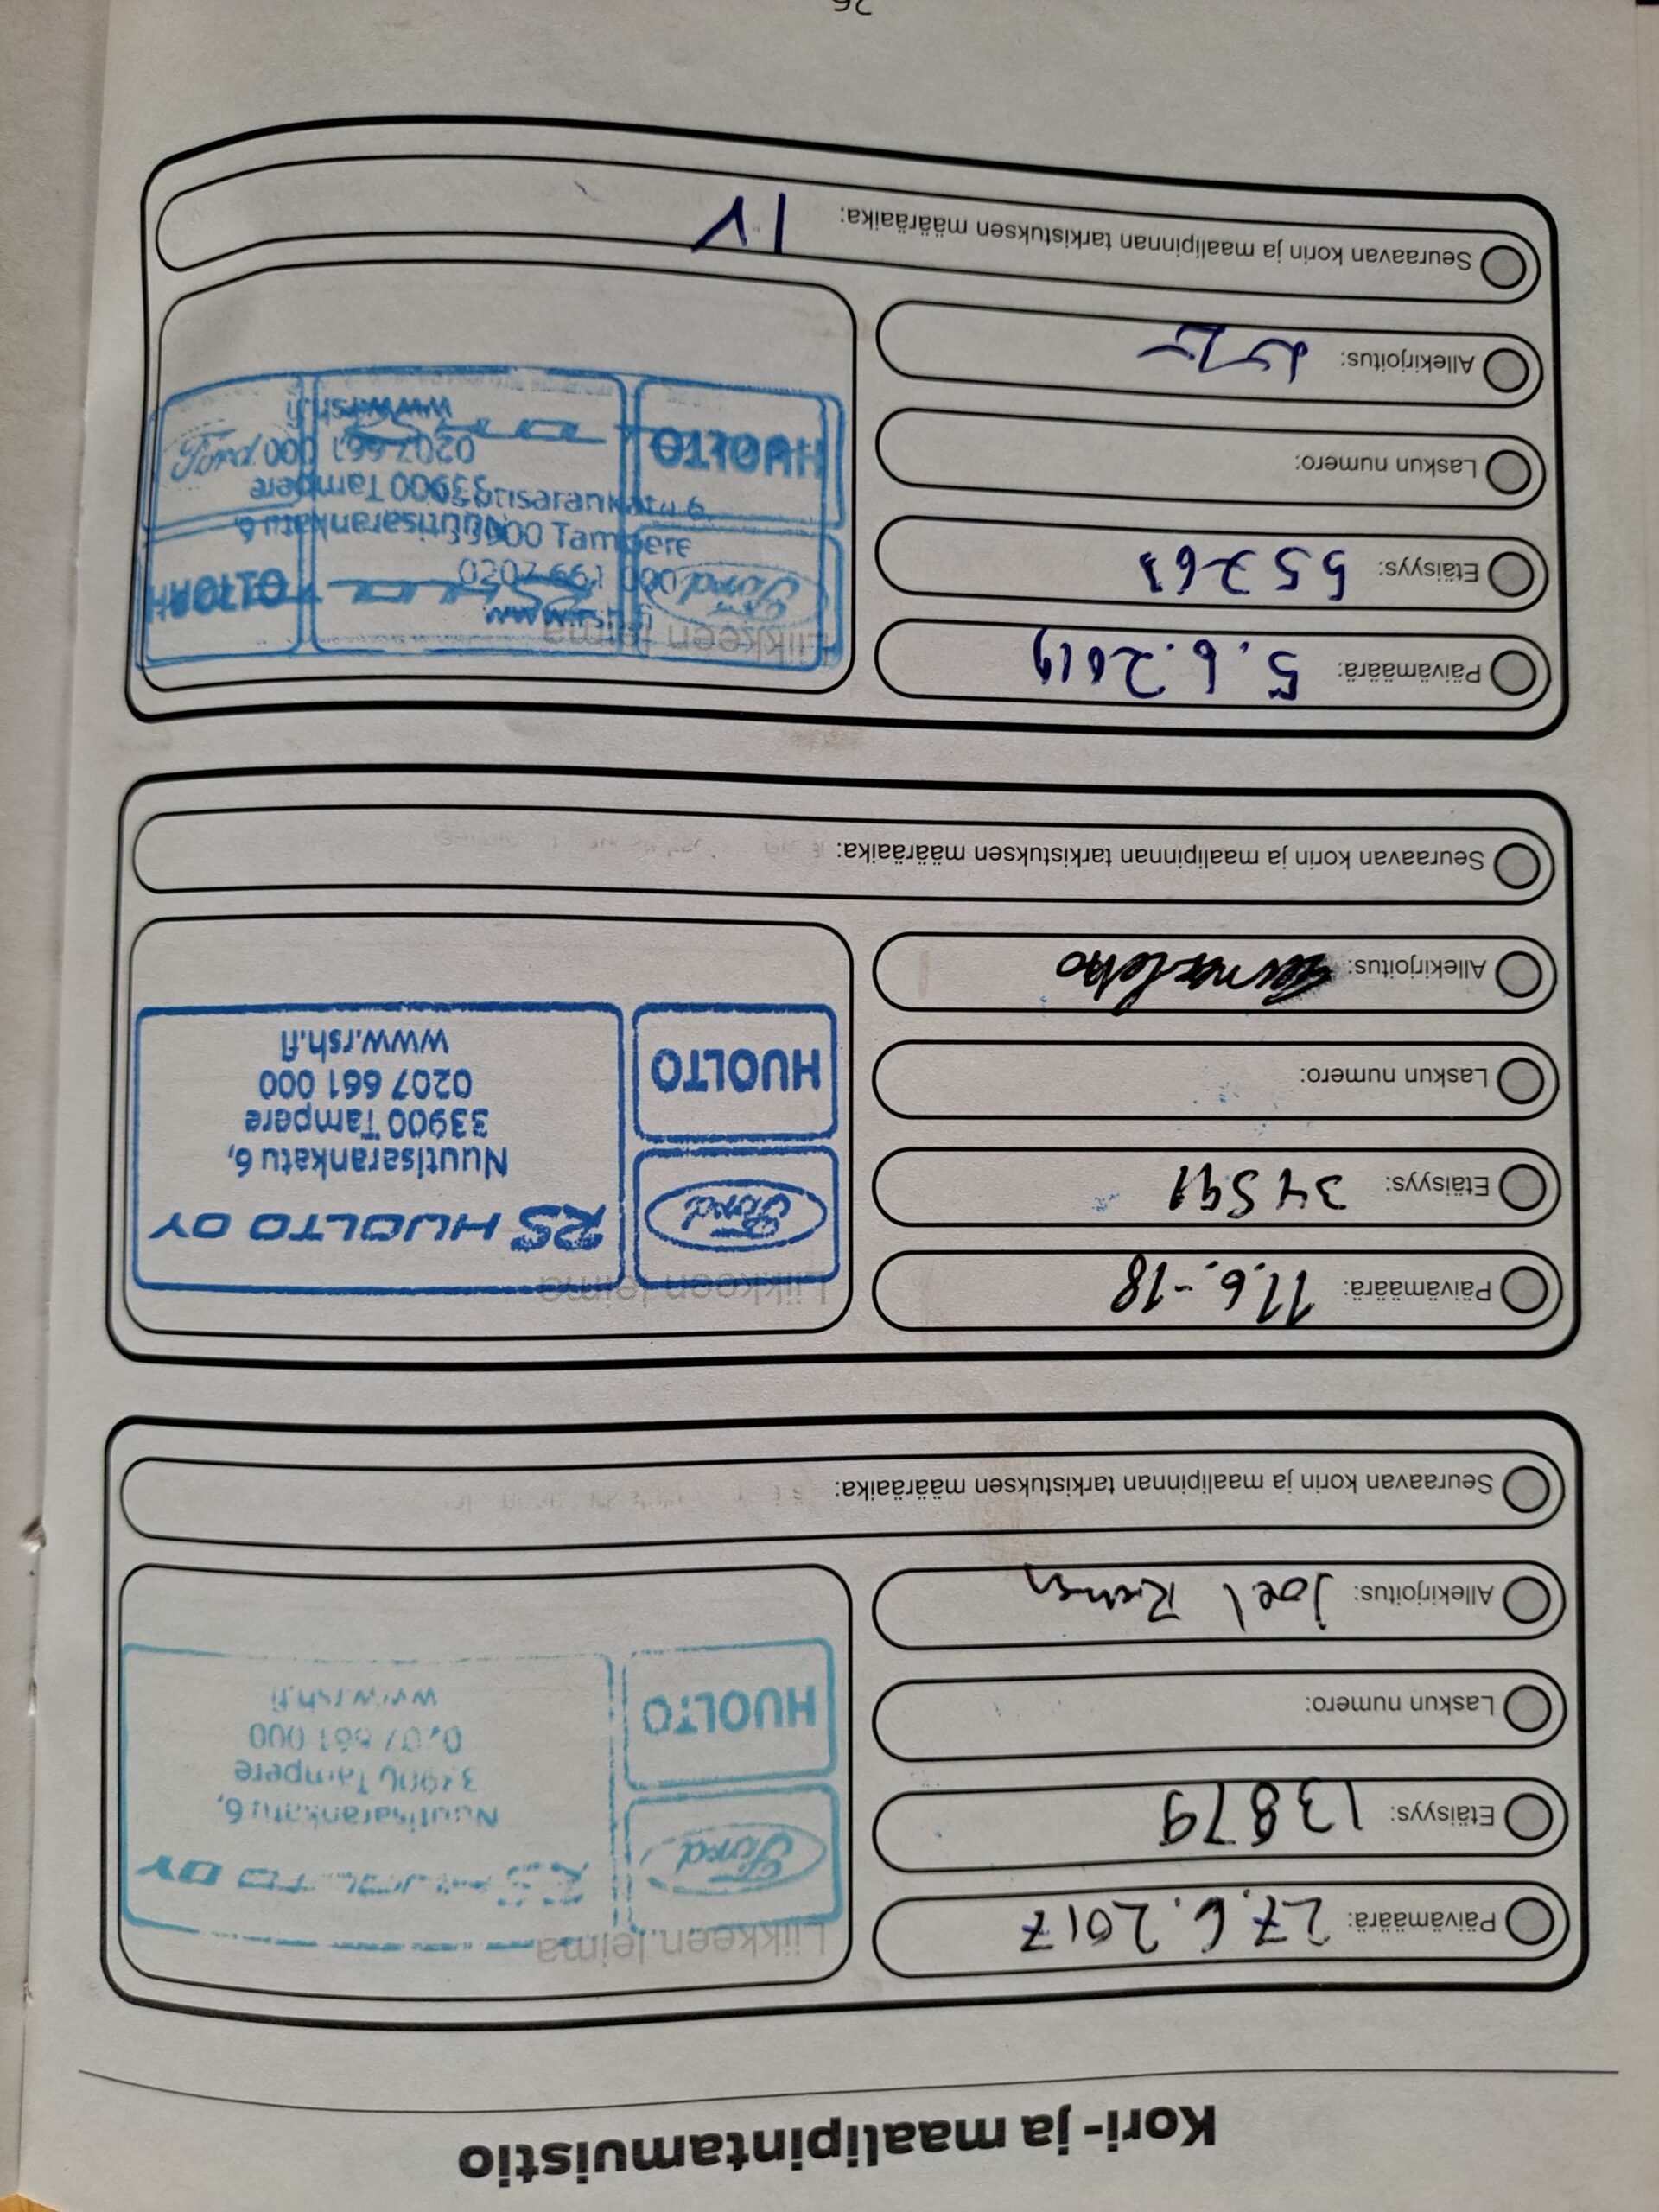 Kori- ja maalipintamuistio
Päivämäärä: 27.6.2017
Etäisyys: 13879
Laskun numero:
Allekirjoitus: Joel
Liikkeen leima
Ford
HUOLTO
RS HUOLTO OY
Nuutisarankatu 6,
33900 Tampere
0207 661 000
www.rsh.fi
Seuraavan korin ja maalipinnan tarkistuksen määräaika:
Päivämäärä: 11.6.-18
Etäisyys: 34591
Laskun numero:
Allekirjoitus:
Liikkeen leima
Ford
HUOLTO
RS HUOLTO OY
Nuutisarankatu 6,
33900 Tampere
0207 661 000
www.rsh.fi
Seuraavan korin ja maalipinnan tarkistuksen määräaika:
Päivämäärä: 5.6.2019
Etäisyys: 55763
Laskun numero:
Allekirjoitus:
Liikkeen leima
Ford
HUOLTO
www.rsh.fi
0207 661 000
33900 Tampere
Nuutisarankatu 6,
HUOLTO
Nuutisarankatu 6,
33900 Tampere
0207 661 000
www.rsh.fi
Ford
Seuraavan korin ja maalipinnan tarkistuksen määräaika: 1V
26